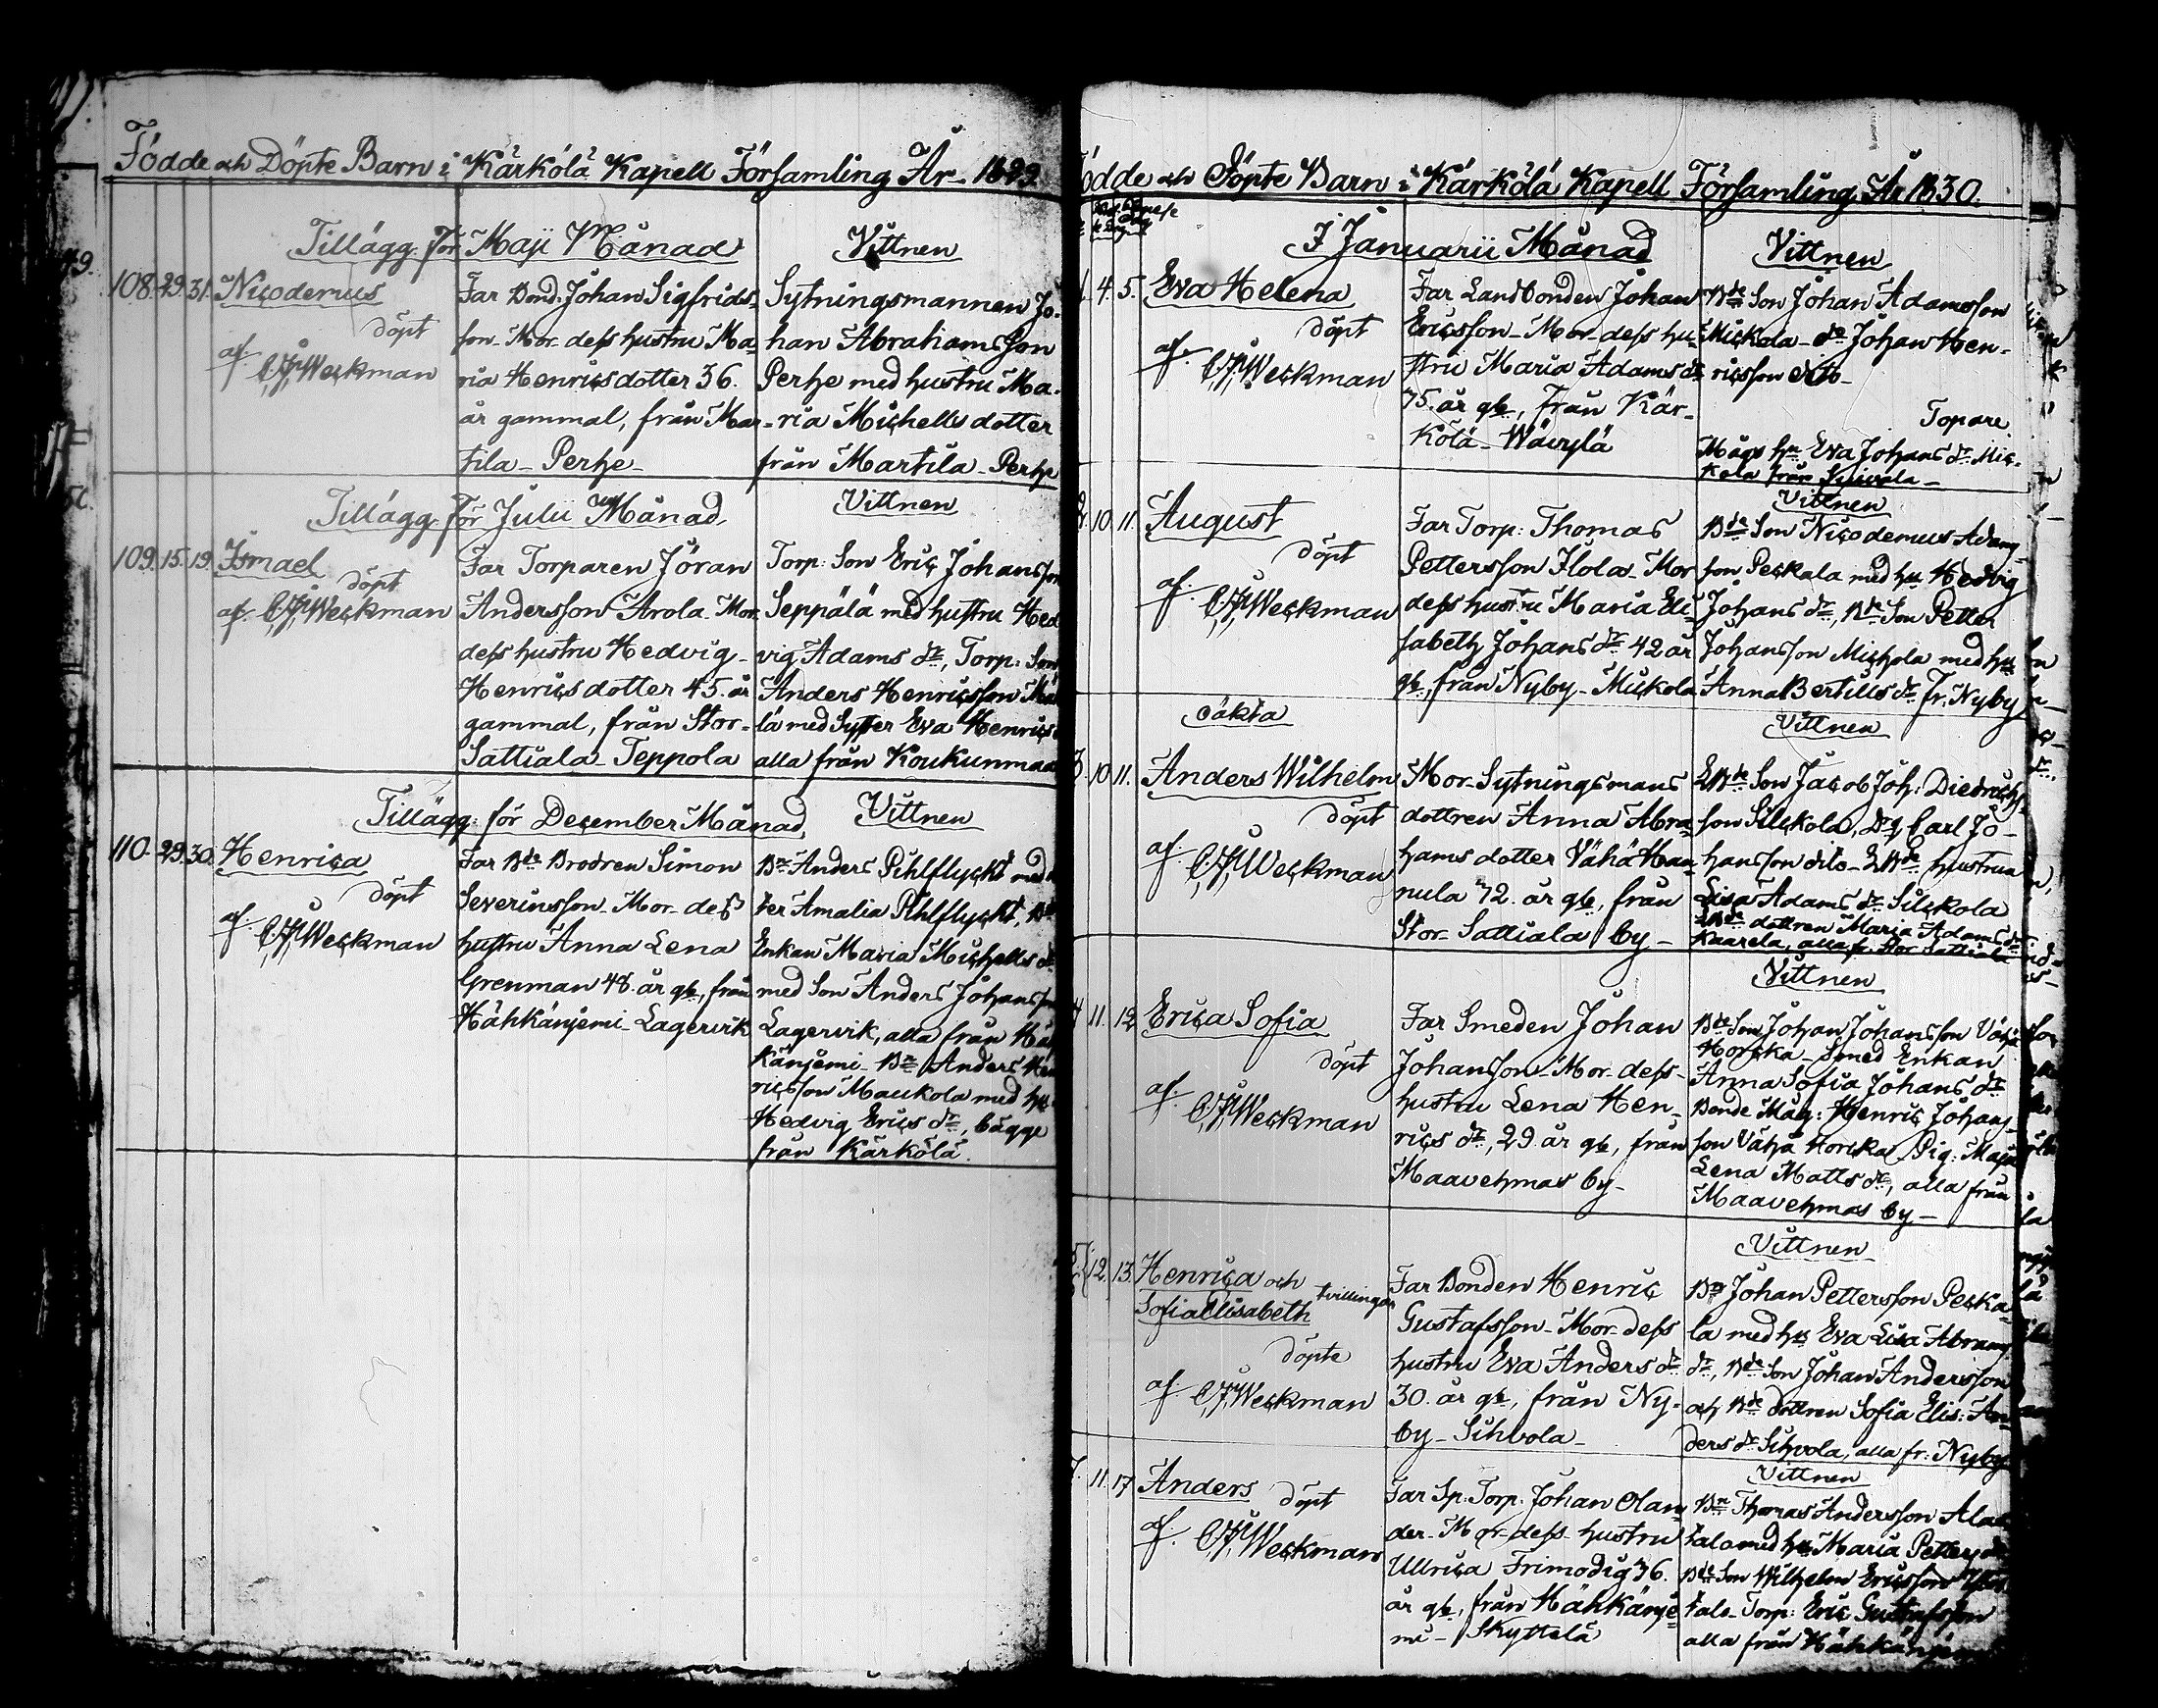 Födde och Döpte Barn i Kärkölä Kapell Församling År 1829.
Tillägg för Maji Månad
Vittnen
108. 29. 31. Nicodemus
döpt
af C,F,Weckman
Far Bond. Johan Sigfrids-
son. Mor dess hustru Ma-
ria Henricsdotter 36.
år gammal, från Mar-
tila - Perhe -
Sytningsmannen Jo-
han Abrahamsson
Perhe med hustru Ma-
ria Michellsdotter
från Martila - Perhe
Tillägg för Julii Månad
Vittnen
109. 15. 19. Ismael
döpt
af C,F,Weckman
Far Torparen Jöran
Andersson Arola. Mor
dess hustru Hedvig
Henricsdotter 45. år
gammal, från Stor-
Sattiala Teppola
Torp: Son Eric Johansson
Seppälä med hustru Hed
vig Adams dr, Torp: Son
Anders Henricsson
lä med Syster Eva Henrics
alla från Koukunmaa
Tillägg för December Månad,
Vittnen
110. 29. 30. Henrica
döpt
af C,F,Weckman
Far Bde Brodren Simon
Severinsson. Mor dess
hustru Anna Lena
Grenman 48. år gl, från
Hähkänjemi - Lagervik
Bn Anders Pihlflyckt med
ter Amalia Pihlflyckt,
Enkan Maria Michells dr
med Son Anders Johansson
Lagervik, alla från Häh
känjemi - Bn Anders Hen
ricsson Maukola med hu
Hedvig Erics dr, bägge
från Kärkölä.
Födde och Döpte Barn i Kärkölä Kapell Församling År 1830.
I Januarii Månad
Vittnen
1. 4. 5. Eva Helena
döpt
af C,F,Weckman
Far Landbonden Johan
Ericsson - Mor dess hu-
stru Maria Adams dr
75. år gl, från Kär-
kölä - Wävylä
Bde Son Johan Adamsson
Mickola - dr Johan Hen-
ricsson dito -
Topare
Mågs hu Eva Johans dr Mic-
kola från
Vittnen
2. 10. 11. August
döpt
af C,F,Weckman
Far Torp: Thomas
Pettersson Ilola - Mor
dess hustru Maria Eli-
sabeth Johans dr 42 år
gl, från Nyby - Mickola
Bde Son Nicodemus Adams-
son Peckala med hu Hedvig
Johans dr, Bde Son Petter
Johansson Michola med hu
Anna Bertills dr fr: Nyby
oäkta
Vittnen
3. 10. 11. Anders Wilhelm
döpt
af C,F,Weckman
Mor - Sytningsmans
dottren Anna Abra-
hams dotter Vähä Han-
nula 72. år gl, från
Stor - Sattiala by -
LBde Son Jacob Joh: Diedrich-
son Silckola, Dg, Carl Jo-
hansson dito - LBde hustrun
Lisa Adams dr Silckola
LBde dottren Maria Adams dr
Kaarela, alla fr. Stor Sattiala
Vittnen
4. 11. 12. Erica Sofia
döpt
af C,F,Weckman
Far Smeden Johan
Johansson - Mor dess
hustru Lena Hen-
rics dr, 29. år gl, från
Maavehmas by -
Bde Son Johan Johansson Vähä
Horcka - Smed Enkan
Anna Sofia Johans dr
Bonde Måg: Henric Johans-
son Vähä Horcka Pig: Maja
Lena Matts dr, alla från
Maavehmas by -
Vittnen
12. 13. Henrica och
Sofia Elisabeth tvillingar
döpte
af C,F,Weckman
Far Bonden Henric
Gustafsson - Mor dess
hustru Eva Anders dr
30. år gl, från Ny-
by - Sihvola -
Bn Johan Pettersson Pecka-
la med hu Eva Lisa Abrams
dr, Bde Son Johan Andersson
och Bde dottren Sofia Elis: An-
ders dr Sihvola, alla fr: Nyby
Vittnen
7. 11. 17 Anders
döpt
af C,F,Weckman
Far Sp. Torp. Johan Olan-
der - Mor dess hustru
Ullrica Frimodig 36.
år gl, från Hähkänje-
mi - Skyttelä
Bn Thomas Andersson Ala
talo med hu Maria Petters dr
Bde Son Wilhelm Ericsson
talo - Torp: Eric Gustafsson
alla från Hähkänjemi